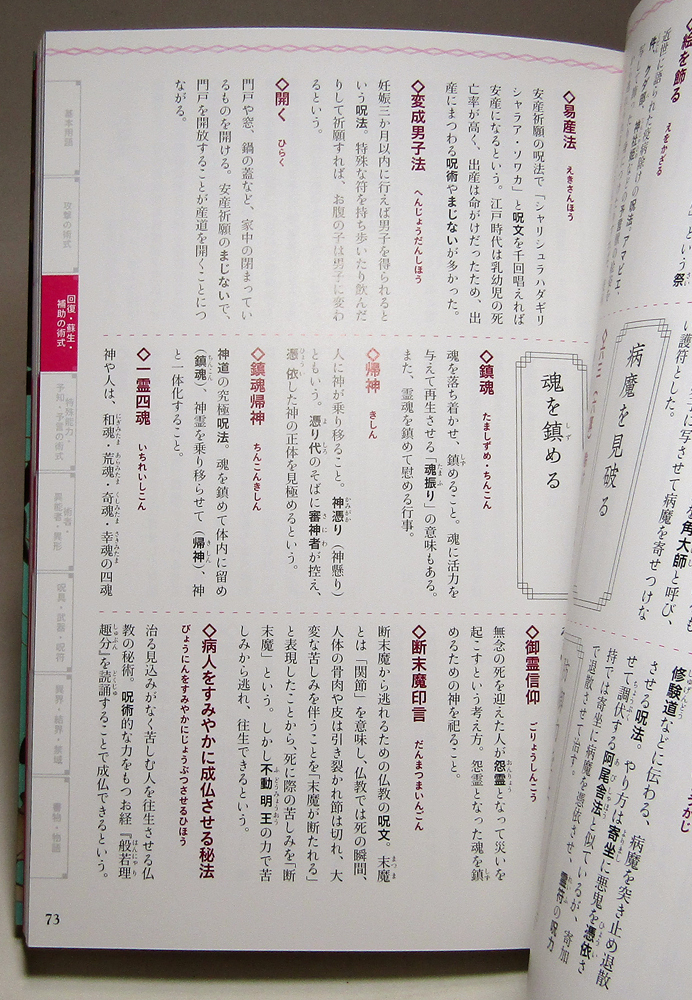 ◇易産法 えきさんほう
安産祈願の呪法で「シャリシュラハダギリ
シャラア・ソワカ」と呪文を千回唱えれば
安産になるという。江戸時代は乳幼児の死
亡率が高く、出産は命がけだったため、出
産にまつわる呪術やまじないが多かった。
◇変成男子法 へんじょうだんしほう
妊娠三か月以内に行えば男子を得られると
いう呪法。特殊な符を持ち歩いたり飲んだ
りして祈願すれば、お腹の子は男子に変わ
るという。
◇開く ひらく
門戸や窓、鍋の蓋など、家中の閉まってい
るものを開ける。安産祈願のまじないで、
門戸を開放することが産道を開くことにつ
ながる。
魂を鎮める
◇鎮魂 たましずめ・ちんこん
魂を落ち着かせ、鎮めること。魂に活力を
与えて再生させる「魂振り」の意味もある。
また、霊魂を鎮めて慰める行事。
◇帰神 きしん
人に神が乗り移ること。神憑り(神懸り)
ともいう。憑り代のそばに審神者が控え、
憑依した神の正体を見極めるという。
◇鎮魂帰神 ちんこんきしん
神道の究極呪法。魂を鎮めて体内に留め
(鎮魂)、神霊を乗り移らせて(帰神)、神
と一体化すること。
◇一霊四魂 いちれいしこん
神や人は、和魂・荒魂・奇魂・幸魂の四魂
◇御霊信仰 ごりょうしんこう
無念の死を迎えた人が怨霊となって災いを
起こすという考え方。怨霊となった魂を鎮
めるための神を祀ること。
◇断末魔印言 だんまつまいんごん
断末魔から逃れるための仏教の呪文。末魔
とは「関節」を意味し、仏教では死の瞬間、
人体の骨肉や皮は引き裂かれ節は切れ、大
変な苦しみを伴うことを「末魔が断たれる」
と表現したことから、死に際の苦しみを「断
末魔」という。しかし不動明王の力で苦
しみから逃れ、往生できるという。
◇病人をすみやかに成仏させる秘法
びょうにんをすみやかにじょうぶつさせるひほう
治る見込みがなく苦しむ人を往生させる仏
教の秘術。呪術的な力をもつお経『般若理
趣分』を読誦することで成仏できるという。
73
基本用語
攻撃の術式
回復・蘇生・
補助の術式
特殊能力・
予知・予言の術式
術者・
異能者・異形
呪具・武器・呪符
異界・結界・禁域
書物・物語
絵を飾る えをかざる
病魔を見破る
角大師と呼び、
護符とした。
病魔を寄せつけな
修験道などに伝わる、病魔を突き止め退散
させる呪法。やり方は寄坐に悪鬼を憑依さ
せて調伏する阿尾舎法と似ているが、寄加
持では寄坐に病魔を憑依させ、霊符の呪力
で退散させて治す。